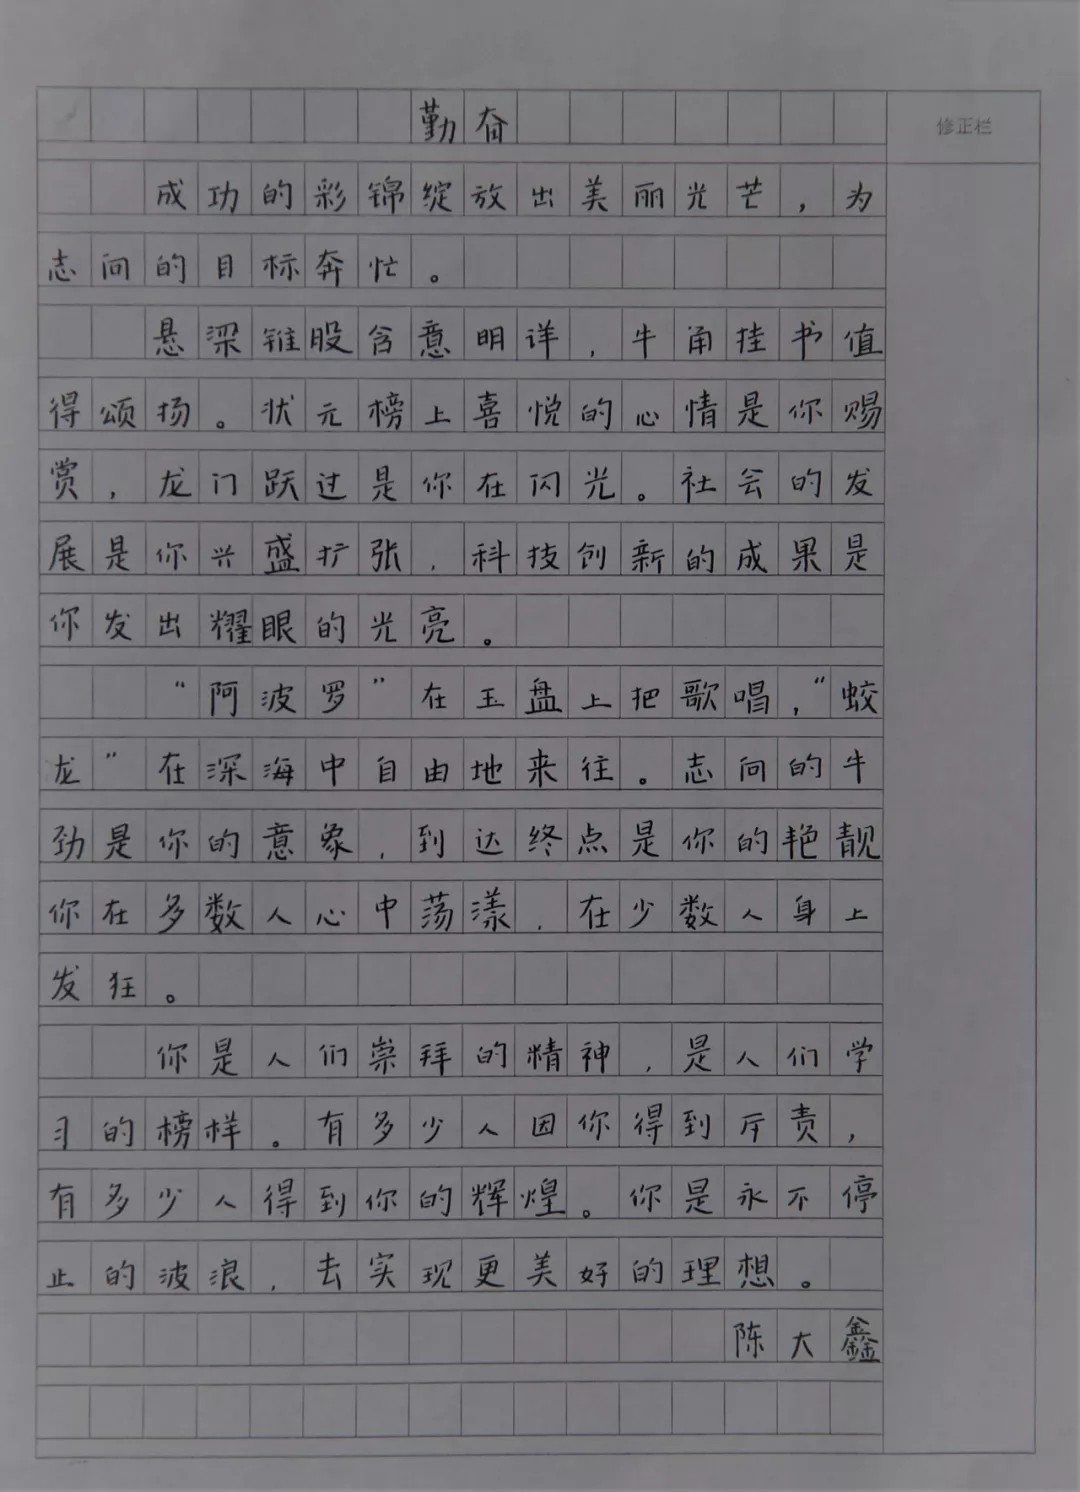 勤奋
修正栏
成功的彩锦绽放出美丽光芒，为
志向的目标奔忙。
悬梁锥股含意明详，牛角挂书值
得颂扬。状元榜上喜悦的心情是你赐
赏，龙门跃过是你在闪光。社会的发
展是你兴盛扩张，科技创新的成果是
你发出耀眼的光亮。
“阿波罗”在玉盘上把歌唱，“蛟
龙”在深海中自由地来往。志向的牛
劲是你的意象，到达终点是你的艳靓
你在多数人心中荡漾，在少数人身上
发狂。
你是人们崇拜的精神，是人们学
习的榜样。有多少人因你得到斥责，
有多少人得到你的辉煌。你是永不停
止的波浪，去实现更美好的理想。
陈大鑫